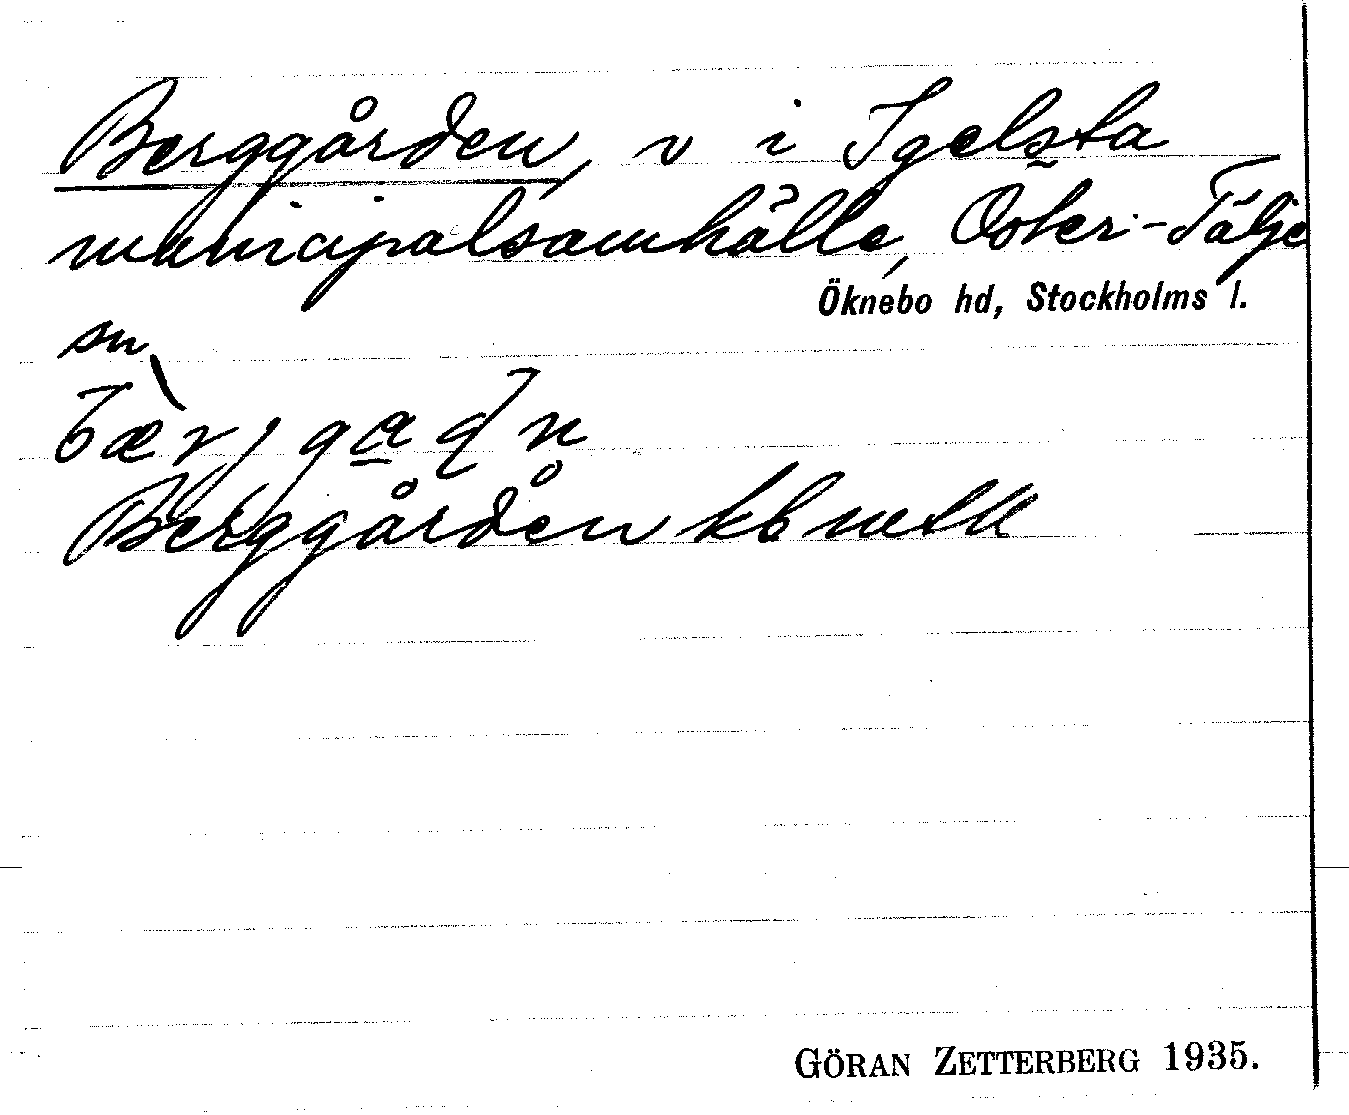 Berggården, v i Igelsta
municipalsamhälle, Öster-Tälje
Öknebo hd, Stockholms l.
sn
Berggården kb
GÖRAN ZETTERBERG 1935.